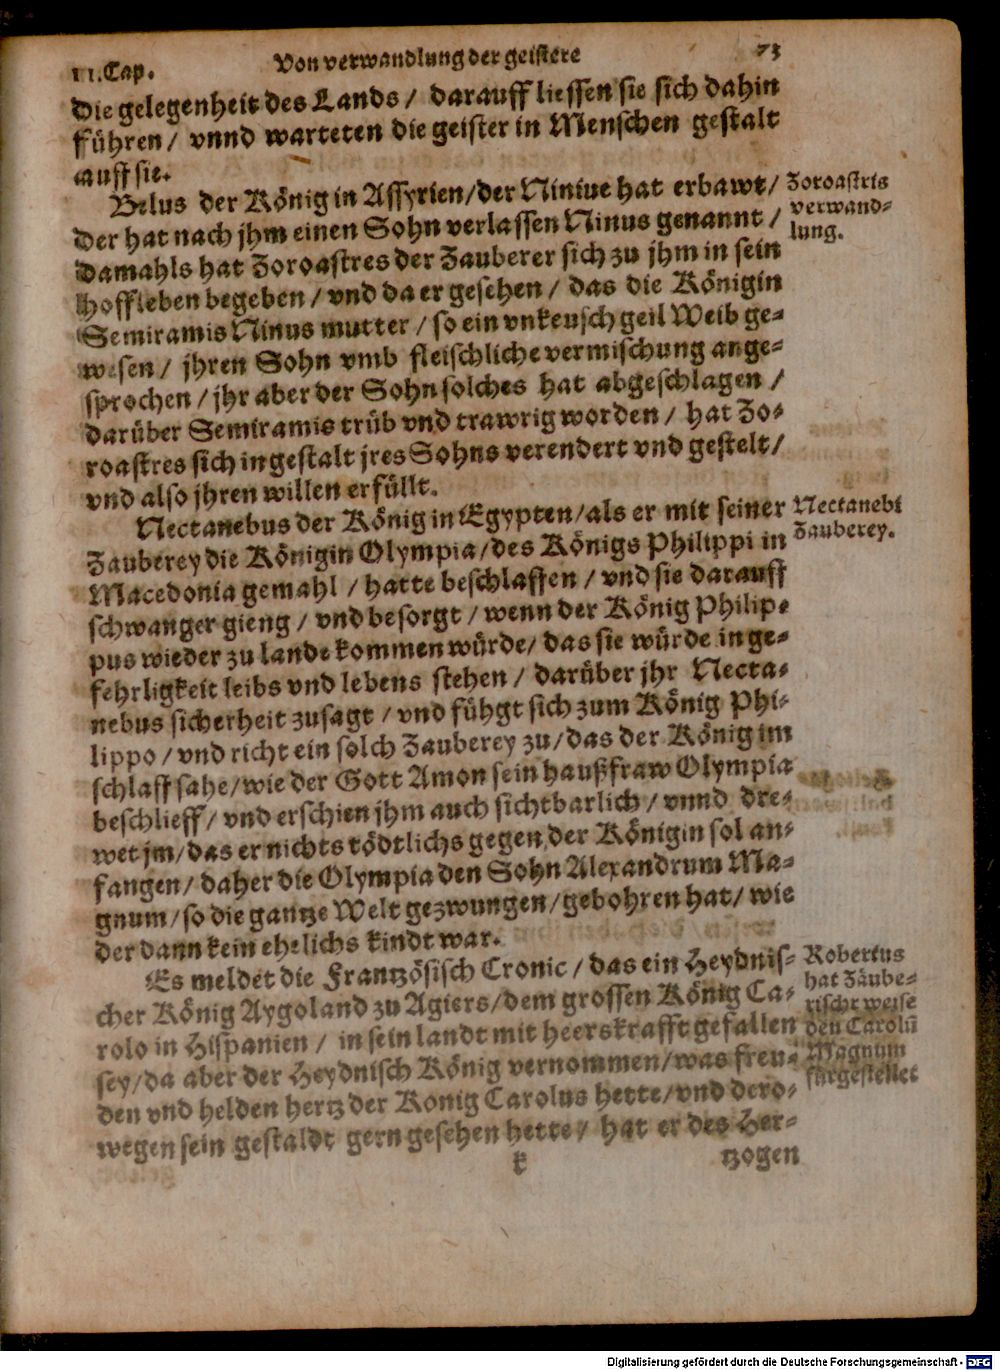 11.Cap. Von verwandlung der geistere 73
die gelegenheit des Lands / darauff liessen sie sich dahin
führen / vnnd warteten die geister in Menschen gestalt
auff sie.
Belus der König in Assyrien/der Niniue hat erbawt/
der hat nach jhm einen Sohn verlassen Ninus genannt /
damahls hat Zoroastres der Zauberer sich zu jhm in sein
Hoffleben begeben / vnd da er gesehen / das die Königin
Semiramis Ninus mutter / so ein vnkeusch geil Weib ge-
wesen / jhren Sohn vmb fleischliche vermischung ange-
sprochen / jhr aber der Sohn solches hat abgeschlagen /
darüber Semiramis trüb vnd trawrig worden / hat Zo-
roastres sich in gestalt jres Sohns verendert vnd gestelt/
vnd also jhren willen erfüllt.
Zoroastris
verwand-
lung.
Nectanebus der König in Egypten/als er mit seiner
Zauberey die Königin Olympia/des Königs Philippi in
Macedonia gemahl / hatte beschlaffen / vnd sie darauff
schwanger gieng / vnd besorgt / wenn der König Philip-
pus wieder zu lande kommen würde/ das sie würde in ge-
fehrligkeit leibs vnd lebens stehen / darüber jhr Necta-
nebus sicherheit zusagt / vnd fühgt sich zum König Phi-
lippo / vnd richt ein solch Zauberey zu/das der König im
schlaff sahe/wie der Gott Amon sein haußfraw Olympia
beschlieff/ vnd erschien jhm auch sichtbarlich / vnnd dre-
wet jm/das er nichts tödtlichs gegen der Königin sol an-
fangen/ daher die Olympia den Sohn Alexandrum Ma-
gnum/so die gantze Welt gezwungen/gebohren hat/ wie
der dann kein ehelichs kindt war.
Nectanebi
Zauberey.
Es meldet die Frantzösisch Cronic / das ein Heydnis-
cher König Aygoland zu Agiers/dem grossen König Ca-
rolo in Hispanien / in sein landt mit heerskrafft gefallen
sey/da aber der Heydnisch König vernommen/was freu-
den vnd helden hertz der Konig Carolus hette/vnd dero-
wegen sein gestaldt gern gesehen hette/ hat er des Her-
Robertus
hat Zäube-
rischr weise
den Carolū
Magnum
fürgestellet
k tzogen
Digitalisierung gefördert durch die Deutsche Forschungsgemeinschaft - DFG